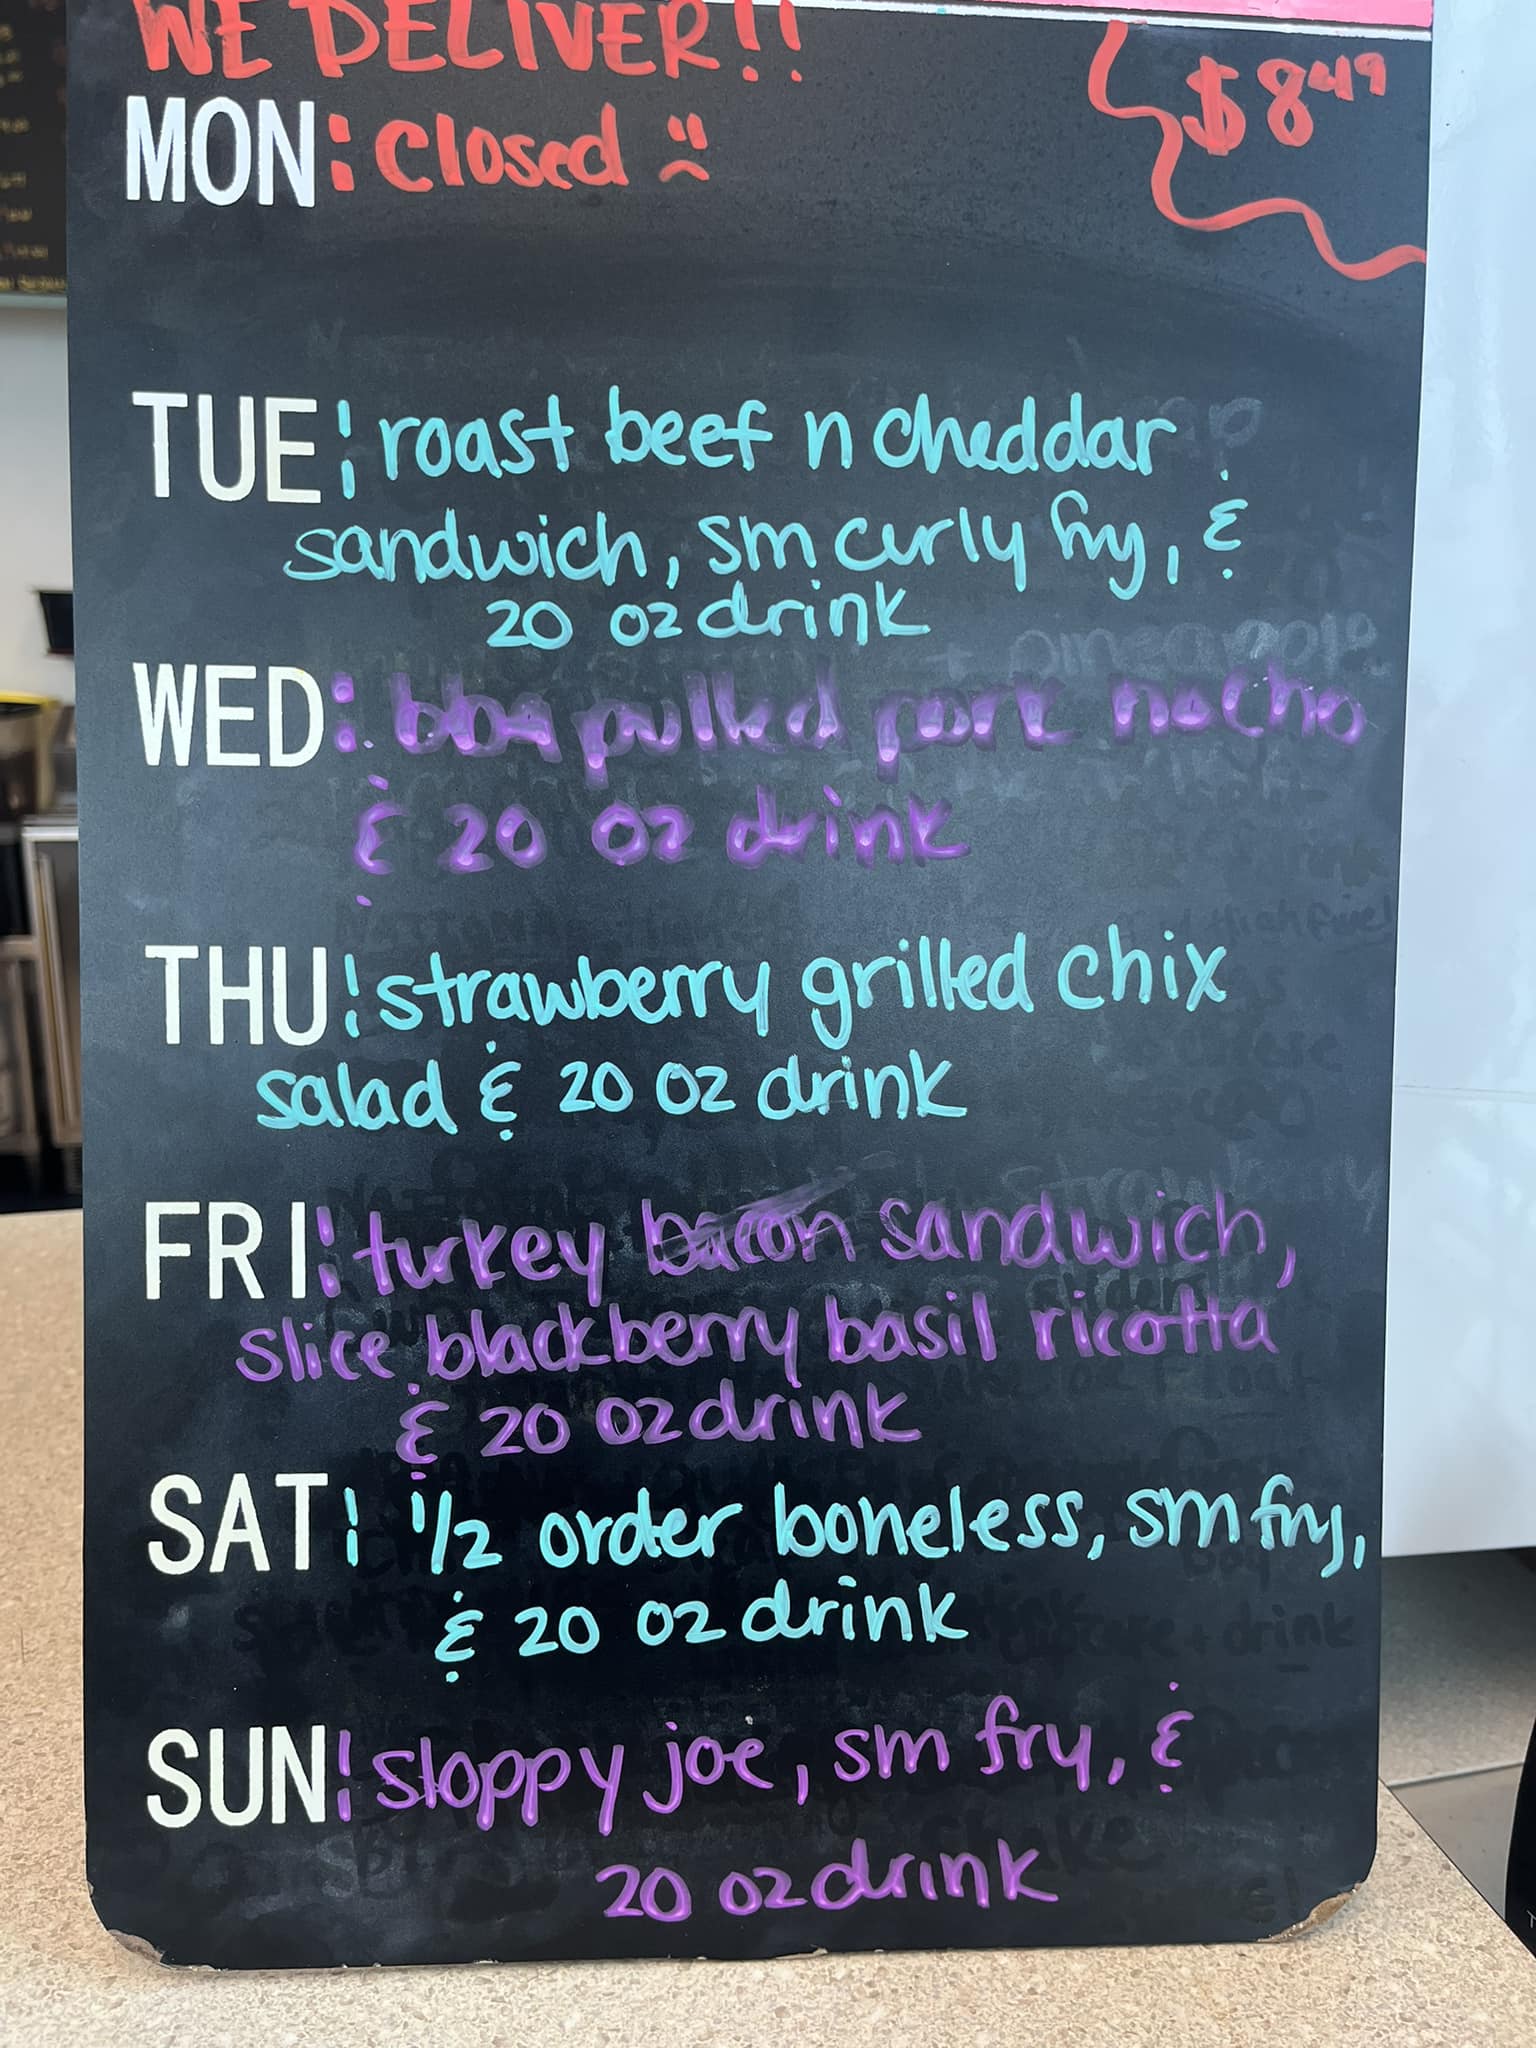 WE DELIVER!!
$8.49
MON: closed
TUE: roast beef n cheddar
sandwich, sm curly fry, &
20 oz drink
WED: bbq pulled pork nacho
& 20 oz drink
THU: strawberry grilled chix
salad & 20 oz drink
FRI: turkey bacon sandwich,
slice blackberry basil ricotta
& 20 oz drink
SAT: 1/2 order boneless, sm fry,
& 20 oz drink
SUN: sloppy joe, sm fry, &
20 oz drink